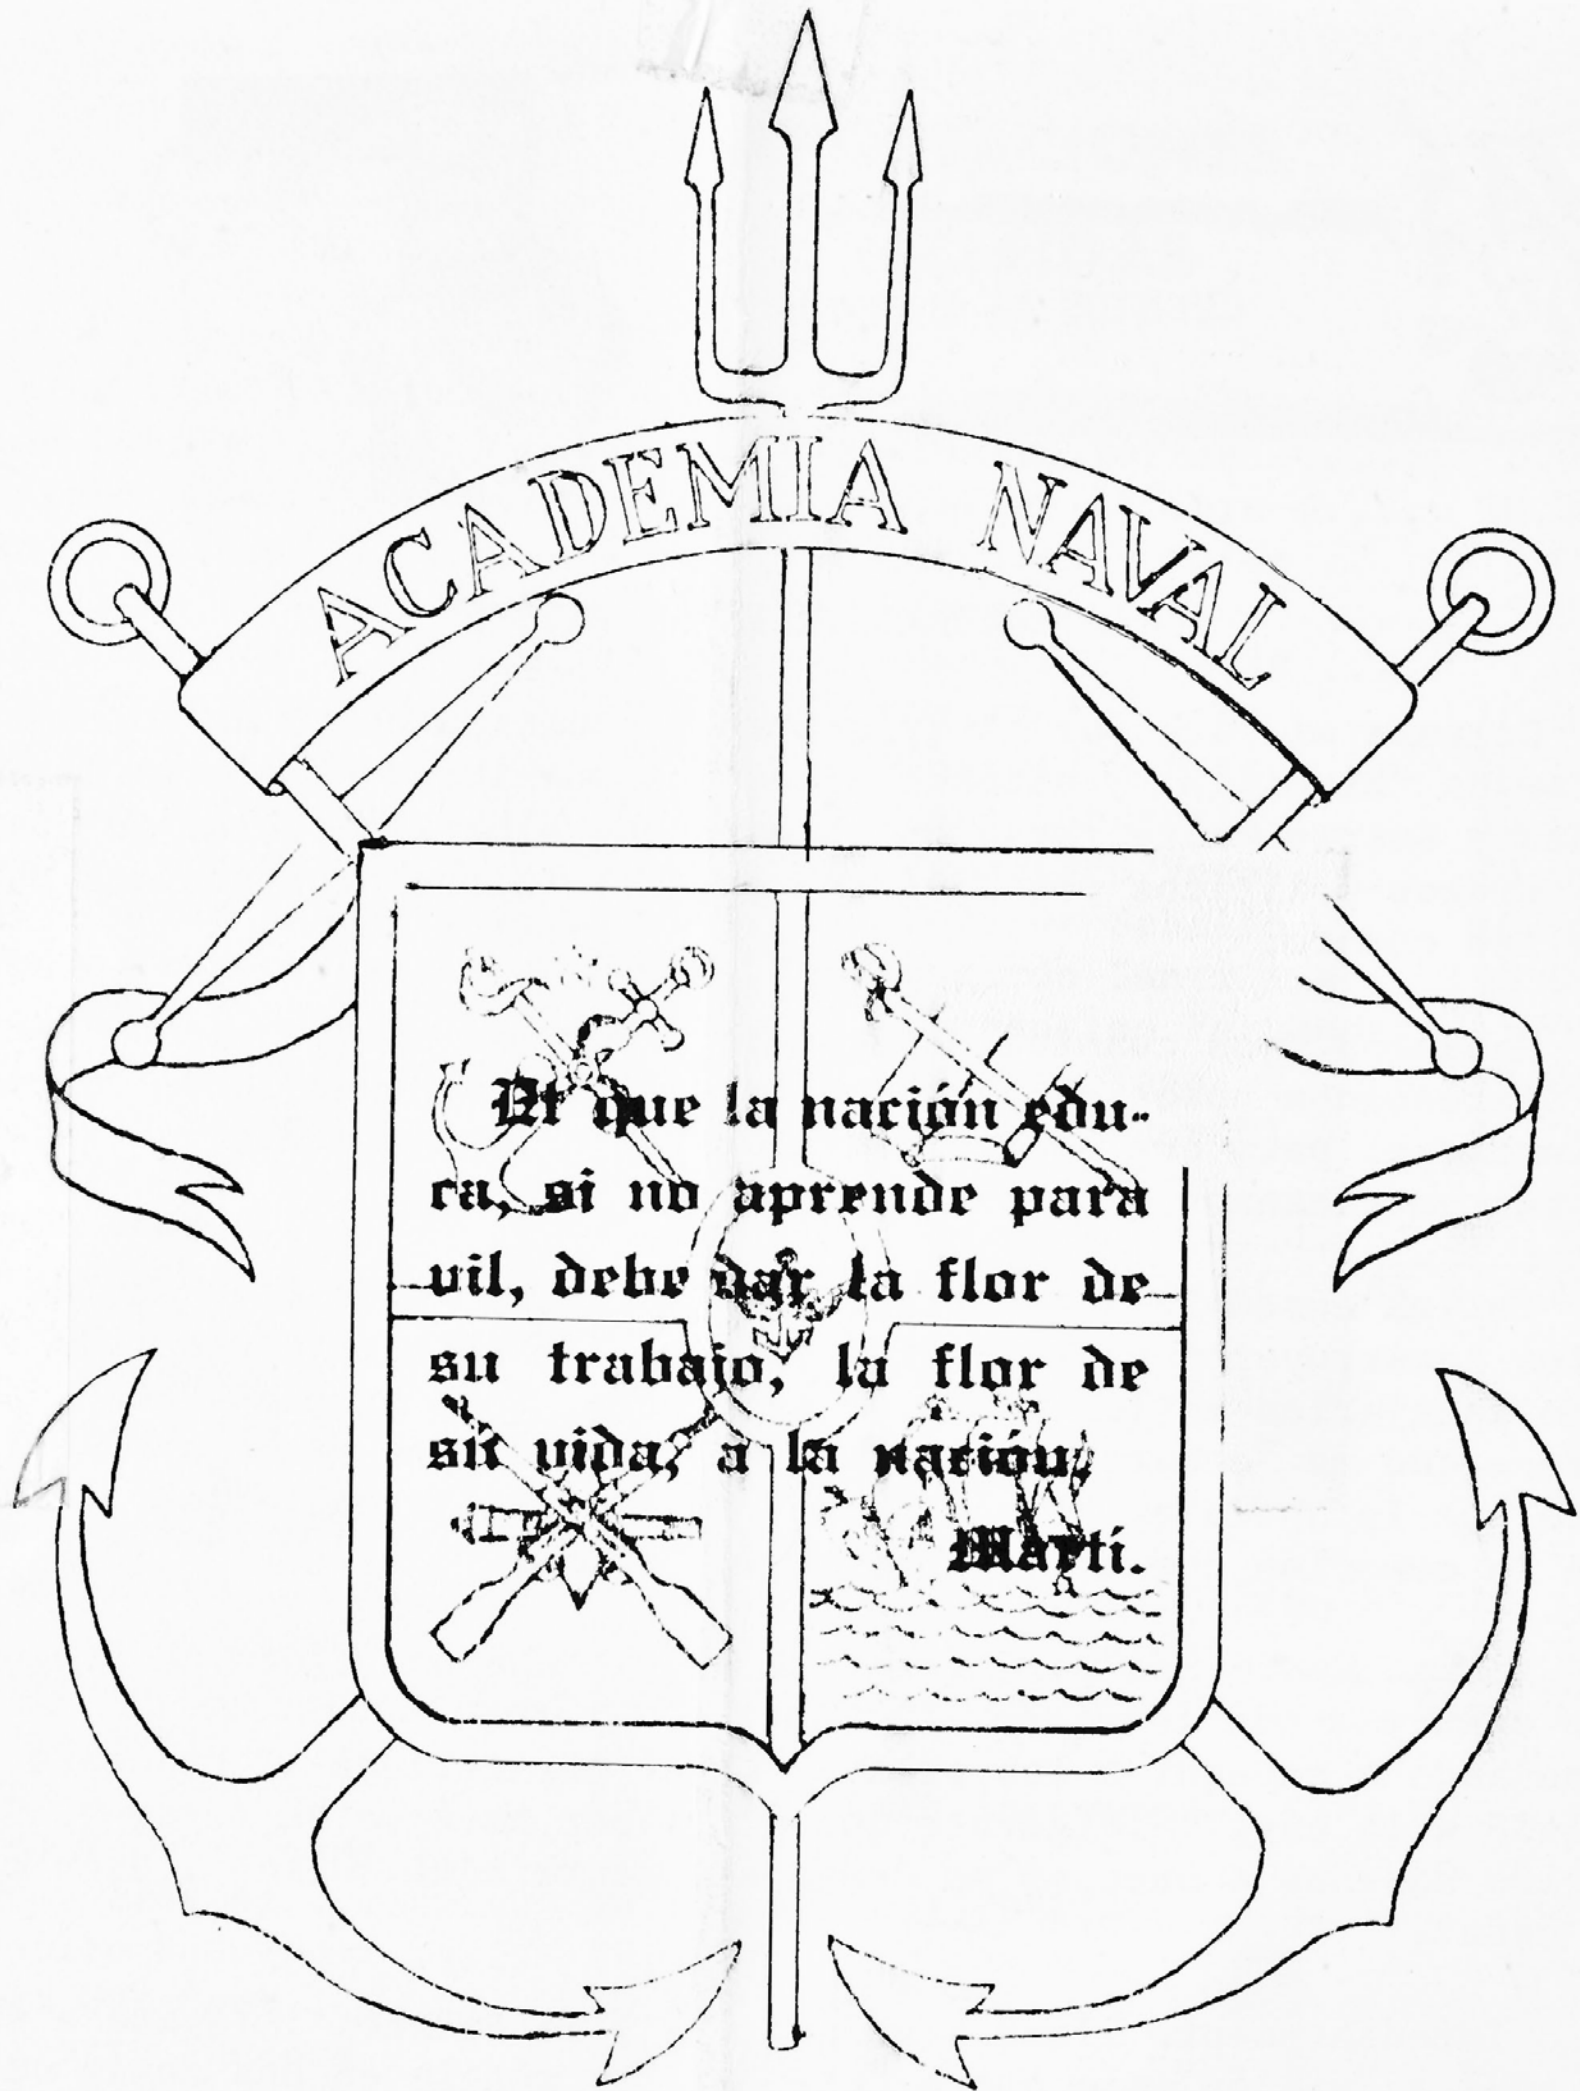 ACADEMIA NAVAL
El que la nación edu-
ca, si no aprende para
vil, debe dar la flor de
su trabajo, la flor de
su vida, a la nación.
Martí.